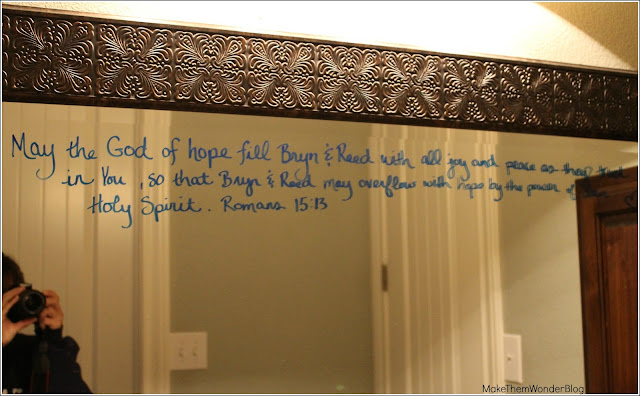 May the God of hope fill Bryn & Reed with all joy and peace as they trust
in You, so that Bryn & Reed may overflow with hope by the power of the
Holy Spirit. Romans 15:13
MakeThemWonderBlog